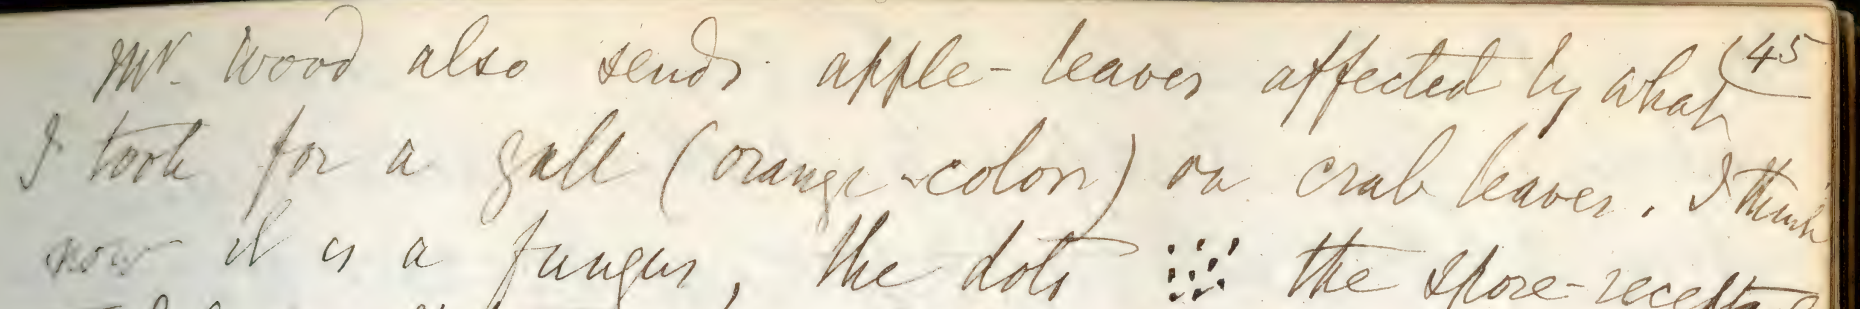 45
Mr. Wood also sends apple-leaves affected by what
I took for a gall (orange-color) on crab leaves. I think
now it is a fungus, the dots the spore-recepta